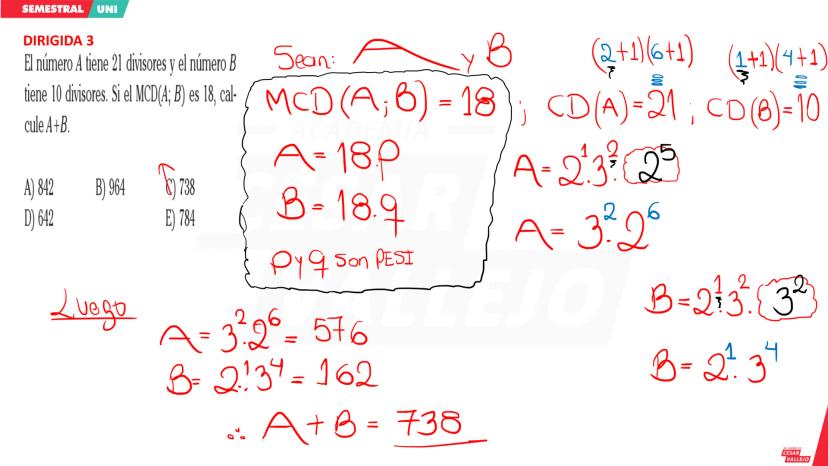 SEMESTRAL UNI
DIRIGIDA 3
El número A tiene 21 divisores y el número B
tiene 10 divisores. Si el MCD(A; B) es 18, cal-
cule A+B.
A) 842 B) 964 C) 738
D) 642 E) 784
Sean: A y B
MCD(A;B) = 18 ;
A = 18.p
B = 18.q
p y q son PESI
(2+1)(6+1) (1+1)(4+1)
CD(A) = 21 ; CD(B) = 10
A = 2¹.3².2⁵
A = 3².2⁶
B = 2¹.3².3²
B = 2¹.3⁴
Luego
A = 3².2⁶ = 576
B = 2¹.3⁴ = 162
∴ A + B = 738
ACADEMIA
CESAR
VALLEJO
CESAR
VALLEJO